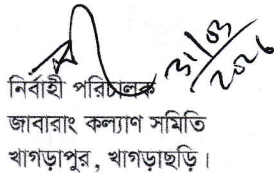 31/03/2026
নির্বাহী পরিচালক
জাবারাং কল্যাণ সমিতি
খাগড়াপুর, খাগড়াছড়ি।